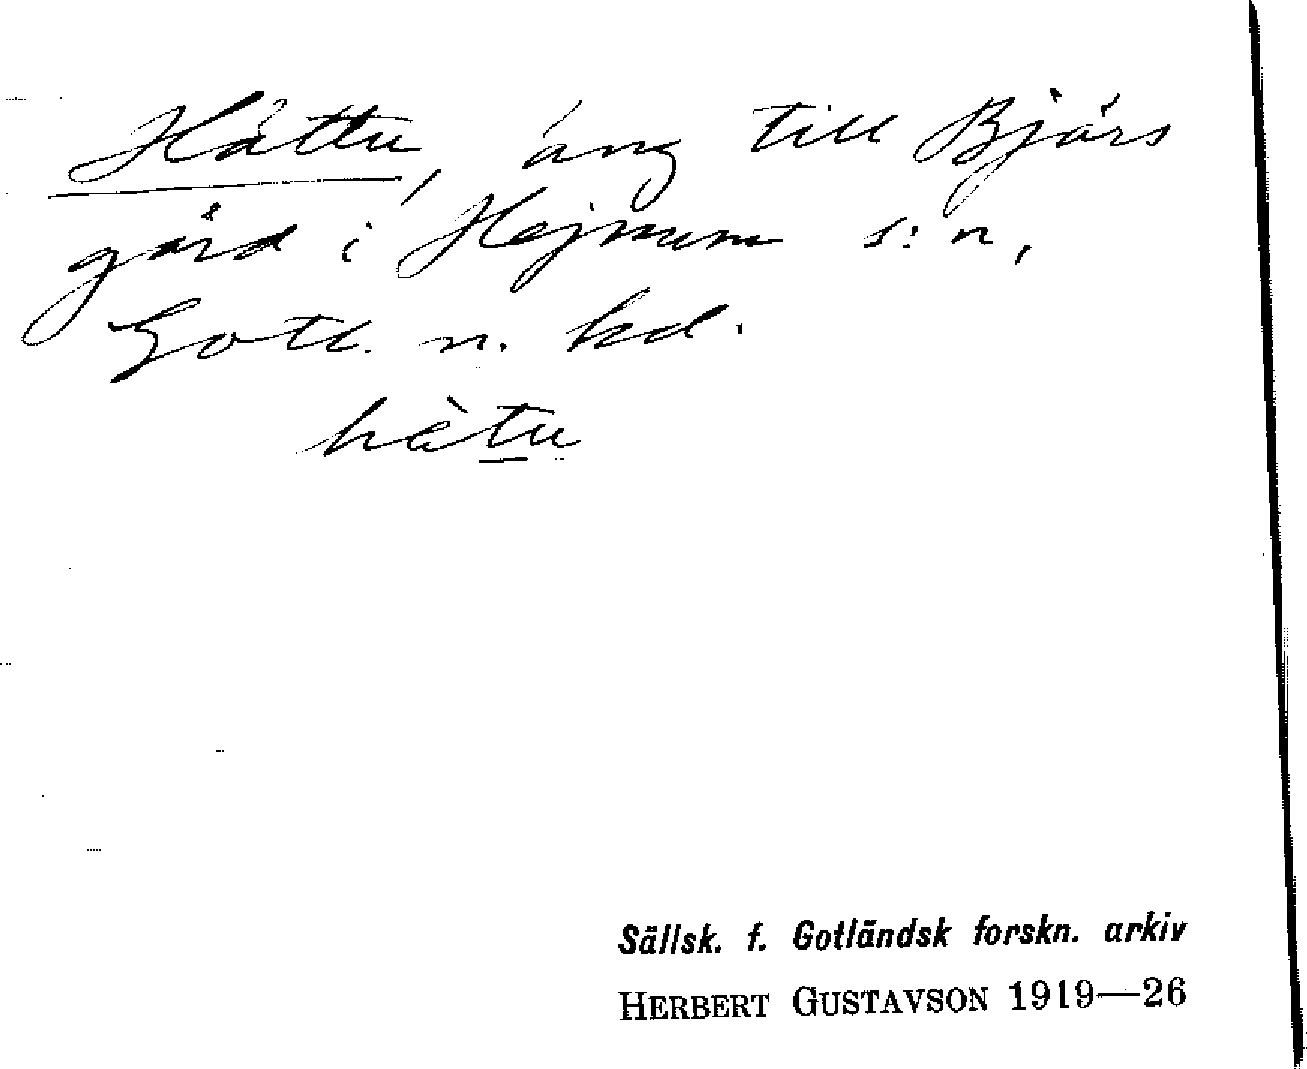 Håttu, äng till Bjärs
gård i Hejnum s:n,
Gotl. n. hd.
hàtu
Sällsk. f. Gotländsk forskn. arkiv
HERBERT GUSTAVSON 1919—26